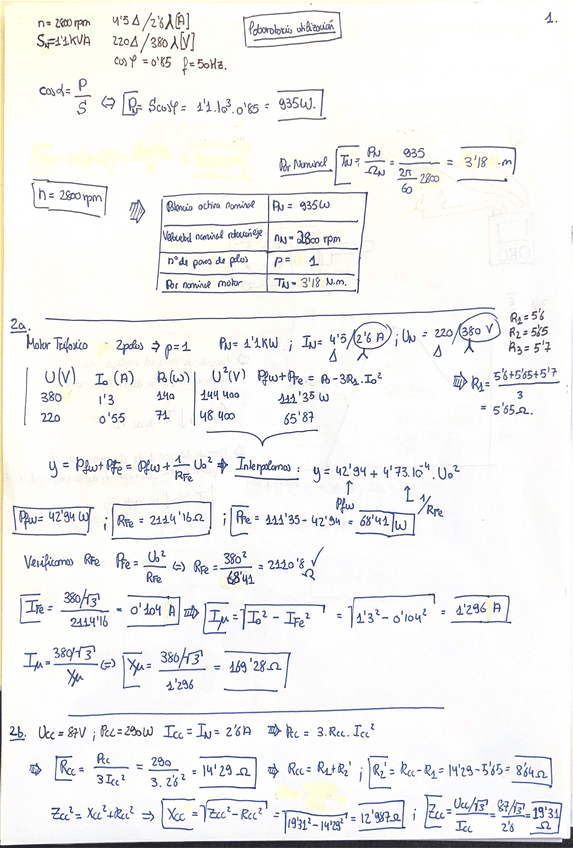 1.
n = 2800 rpm 4'5 Δ / 2'6 λ [A]
Laboratorio utilización
SN = 1'1 KVA 220 Δ / 380 λ [V]
cosφ = 0'85 f = 50Hz.
cosα = P/S ⇔ PN = S cosφ = 1'1.10³.0'85 = 935W.
Par Nominal TN = PN/ΩN = 935/(2π/60 2800) = 3'18 .m
n = 2800 rpm ⇒
Potencia activa nominal PN = 935W
Velocidad nominal nN = 2800 rpm
nº de pares de polos p = 1
Par nominal motor TN = 3'18 N.m.
2a.
Motor Trifásico - 2polos ⇒ p=1 PN = 1'1KW ; IN = 4'5 / 2'6 A ; UN = 220 / 380 V
Δ λ Δ λ
R1 = 5'6
R2 = 5'65
R3 = 5'7
⇒ R1 = (5'6+5'65+5'7)/3
= 5'65 Ω.
U(V) I₀(A) P₀(W) U²(V) Pfw+Pfe = P₀-3R1.I₀²
380 1'3 140 144 400 111'35 W
220 0'55 71 48 400 65'87
y = Pfw+Pfe = Pfw + 1/RFe U₀² ⇒ Interpolamos: y = 42'94 + 4'73.10⁻⁴.U₀²
↑ Pfw ↑ 1/RFe
Pfw = 42'94 W ; RFe = 2114'16 Ω ; PFe = 111'35 - 42'94 = 68'41 W
Verificamos RFe PFe = U₀²/RFe ⇔ RFe = 380²/68'41 = 2110'8 Ω ✓
IFe = (380/√3)/2114'16 = 0'104 A ⇒ Iμ = √(I₀² - IFe²) = √(1'3² - 0'104²) = 1'296 A
Iμ = (380/√3)/Xμ ⇔ Xμ = (380/√3)/1'296 = 169'28 Ω
2b. Ucc = 87V ; Pcc = 290W Icc = IN = 2'6A ⇒ Pcc = 3.Rcc.Icc²
⇒ Rcc = Pcc/3Icc² = 290/3.2'6² = 14'29 Ω ⇒ Rcc = R1+R2' ; R2' = Rcc-R1 = 14'29-5'65 = 8'64 Ω
Zcc² = Xcc²+Rcc² ⇒ Xcc = √(Zcc² - Rcc²) = √(19'31² - 14'29²) = 12'987 Ω ; Zcc = (Ucc/√3)/Icc = (87/√3)/2'6 = 19'31 Ω